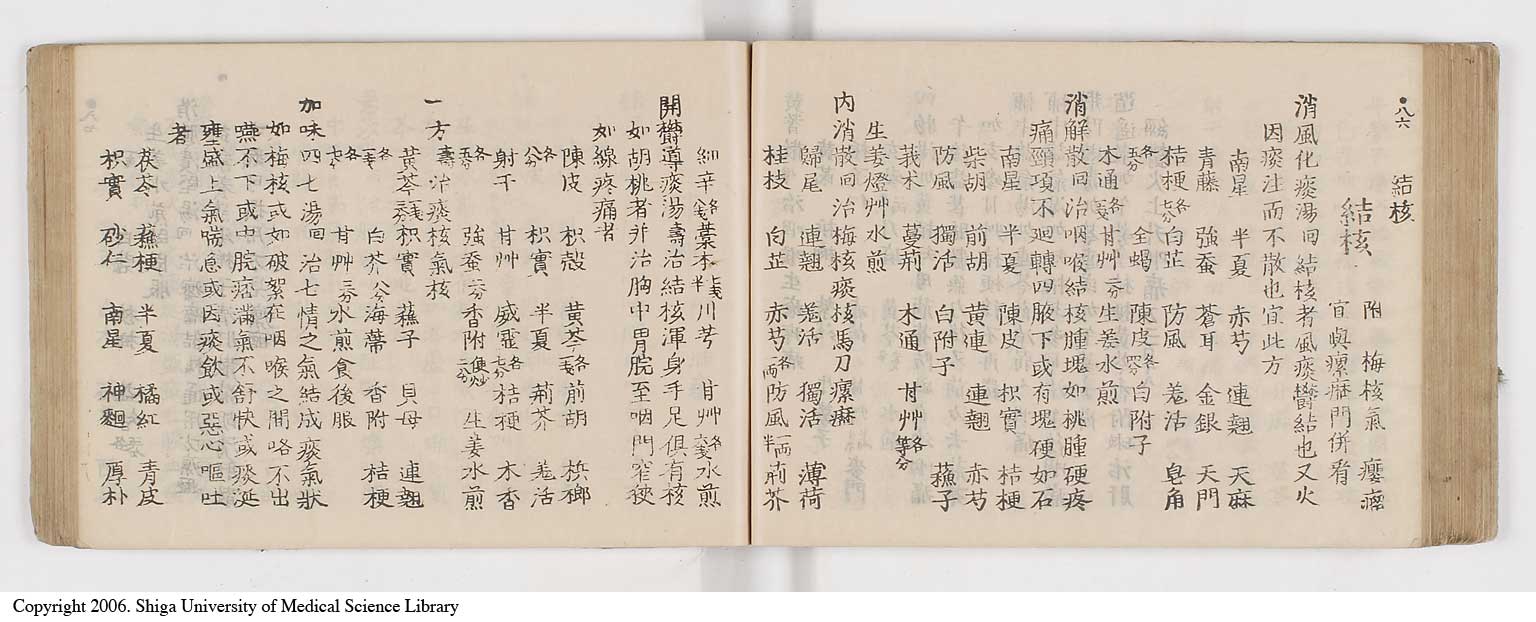 ●八六
結核
結核 附 梅核氣 癭瘤
宜與瘰癧門併看
消風化痰湯回 結核者風痰鬱結也又火
因痰注而不散也宜此方
南星 半夏 赤芍 連翹 天麻
青藤 強蚕 蒼耳 金銀 天門
桔梗各七分 白芷 防風 羌活 皂角
各五分 全蝎 陳皮各四分 白附子
木通各一戔 甘艸二分 生姜水煎
消解散回 治咽喉結核腫塊如桃腫硬疼
痛頸項不廻轉四腋下或有塊硬如石
南星 半夏 陳皮 枳實 桔梗
柴胡 前胡 黃連 連翹 赤芍
防風 獨活 白附子 蘓子
莪术 蔓荊 木通 甘艸各等分
生姜燈艸水煎
內消散回 治梅核痰核馬刀瘰癧
歸尾 連翹 羌活 獨活 薄荷
桂枝 白芷 赤芍各一両 防風一両半 荊芥
細辛各一戔 藁本七戔半 川芎 甘艸各六戔 水煎
開欝導痰湯壽 治結核渾身手足俱有核
如胡桃者并治胸中胃脘至咽門窄狹
如線疼痛者
陳皮 枳殼 黃芩各一戔 前胡 梹榔
各八分 枳實 半夏 荊芥 羌活
射干 甘艸 威靈各七分 桔梗 木香
各五分 強蚕二分 香附便炒二分 生姜水煎
一方壽 治痰核氣核
黃芩二戔 枳實 蘓子 貝母 連翹
各一戔 白芥八分 海藻 香附 桔梗
各七分 甘艸二分 水煎食後服
加味四七湯回 治七情之氣結成痰氣狀
如梅核或如破絮在咽喉之間咯不出
嚥不下或中脘痞滿氣不舒快或痰涎
壅盛上氣喘急或因痰飲或惡心嘔吐
者
茯苓 蘓梗 半夏 橘紅 青皮
枳實 砂仁 南星 神麯 厚朴
Copyright 2006. Shiga University of Medical Science Library